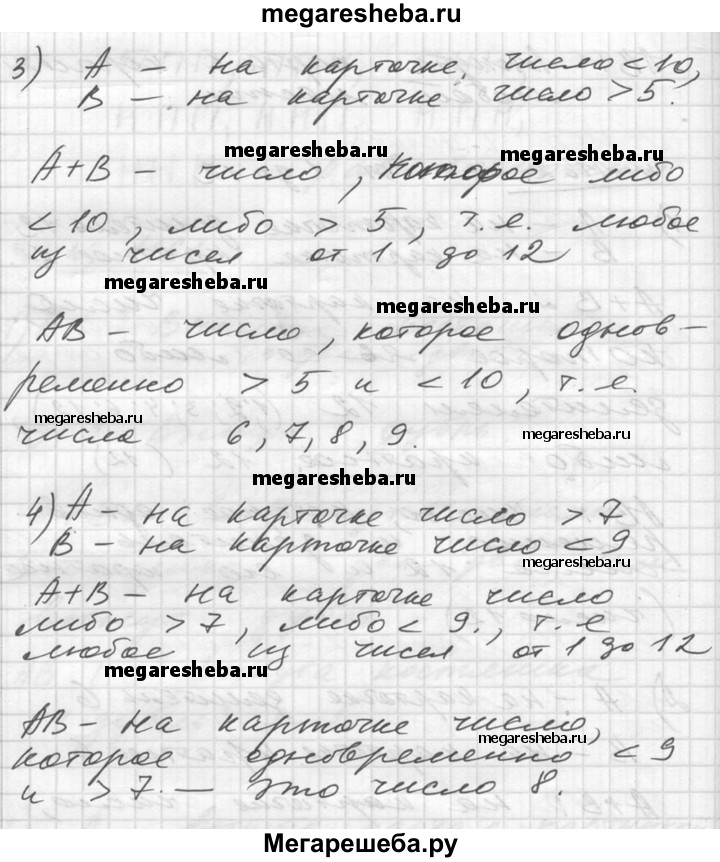 megaresheba.ru
3) А — на карточке число < 10,
В — на карточке число > 5.
megaresheba.ru
megaresheba.ru
А+В — число, которое либо
< 10, либо > 5, т.е. любое
из чисел от 1 до 12
megaresheba.ru
megaresheba.ru
АВ — число, которое однов-
ременно > 5 и < 10, т.е.
megaresheba.ru
числа 6, 7, 8, 9.
megaresheba.ru
megaresheba.ru
4) А — на карточке число > 7
В — на карточке число < 9
megaresheba.ru
А+В — на карточке число
либо > 7, либо < 9., т.е
любое из чисел от 1 до 12
megaresheba.ru
АВ — на карточке число,
megaresheba.ru
которое одновременно < 9
и > 7. — это число 8.
Мегарешеба.ру